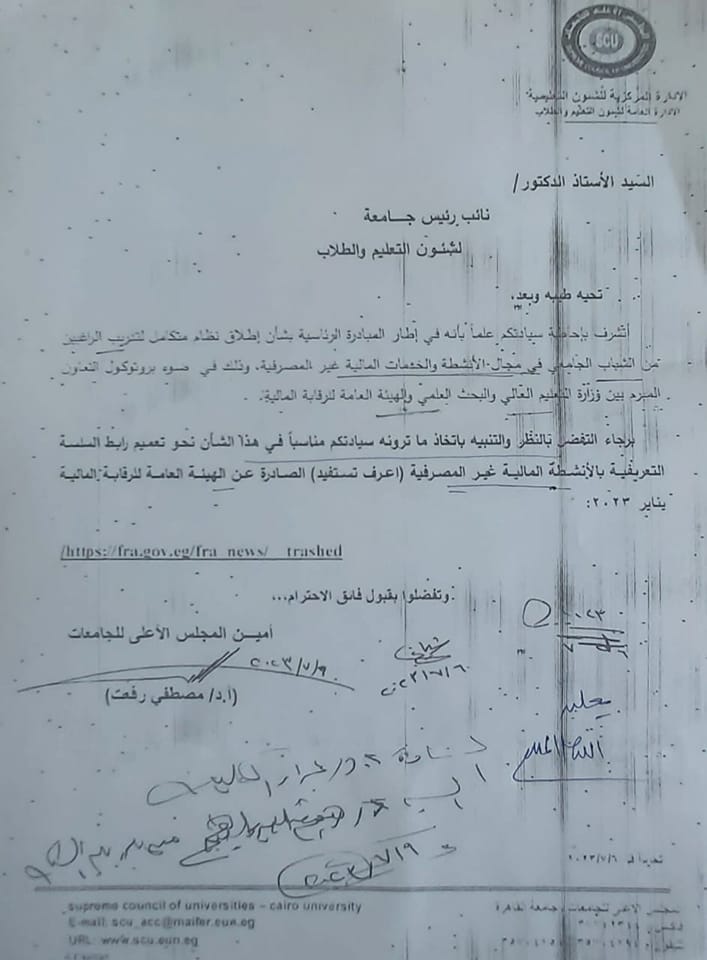 SCU
الإدارة المركزية للشئون التعليمية
الإدارة العامة لشئون التعليم والطلاب
السيد الأستاذ الدكتور/
نائب رئيس جامعة
لشئون التعليم والطلاب
تحيه طيبه وبعد،
أتشرف بإحاطة سيادتكم علماً بأنه في إطار المبادرة الرئاسية بشأن إطلاق نظام متكامل لتدريب الراغبين
من الشباب الجامعي في مجال الأنشطة والخدمات المالية غير المصرفية، وذلك في ضوء بروتوكول التعاون
المبرم بين وزارة التعليم العالي والبحث العلمي والهيئة العامة للرقابة المالية.
برجاء التفضل بالنظر والتنبيه باتخاذ ما ترونه سيادتكم مناسباً في هذا الشأن نحو تعميم رابط السلسة
التعريفية بالأنشطة المالية غير المصرفية (اعرف تستفيد) الصادرة عن الهيئة العامة للرقابة المالية
يناير ٢٠٢٣:
/https://fra.gov.eg/fra_news/__trashed
وتفضلوا بقبول فائق الاحترام...
أمين المجلس الأعلى للجامعات
٢٠٢٣/٧/٩
(أ.د/ مصطفي رفعت)
٢٠٢٣/٧/٦
تحريراً في ٢٠٢٣/٧/٦
supreme council of universities – cairo university
E-mail: scu_acc@mailer.eun.eg
URL: www.scu.eun.eg
مجلس الأعلى للجامعات - جامعة القاهرة